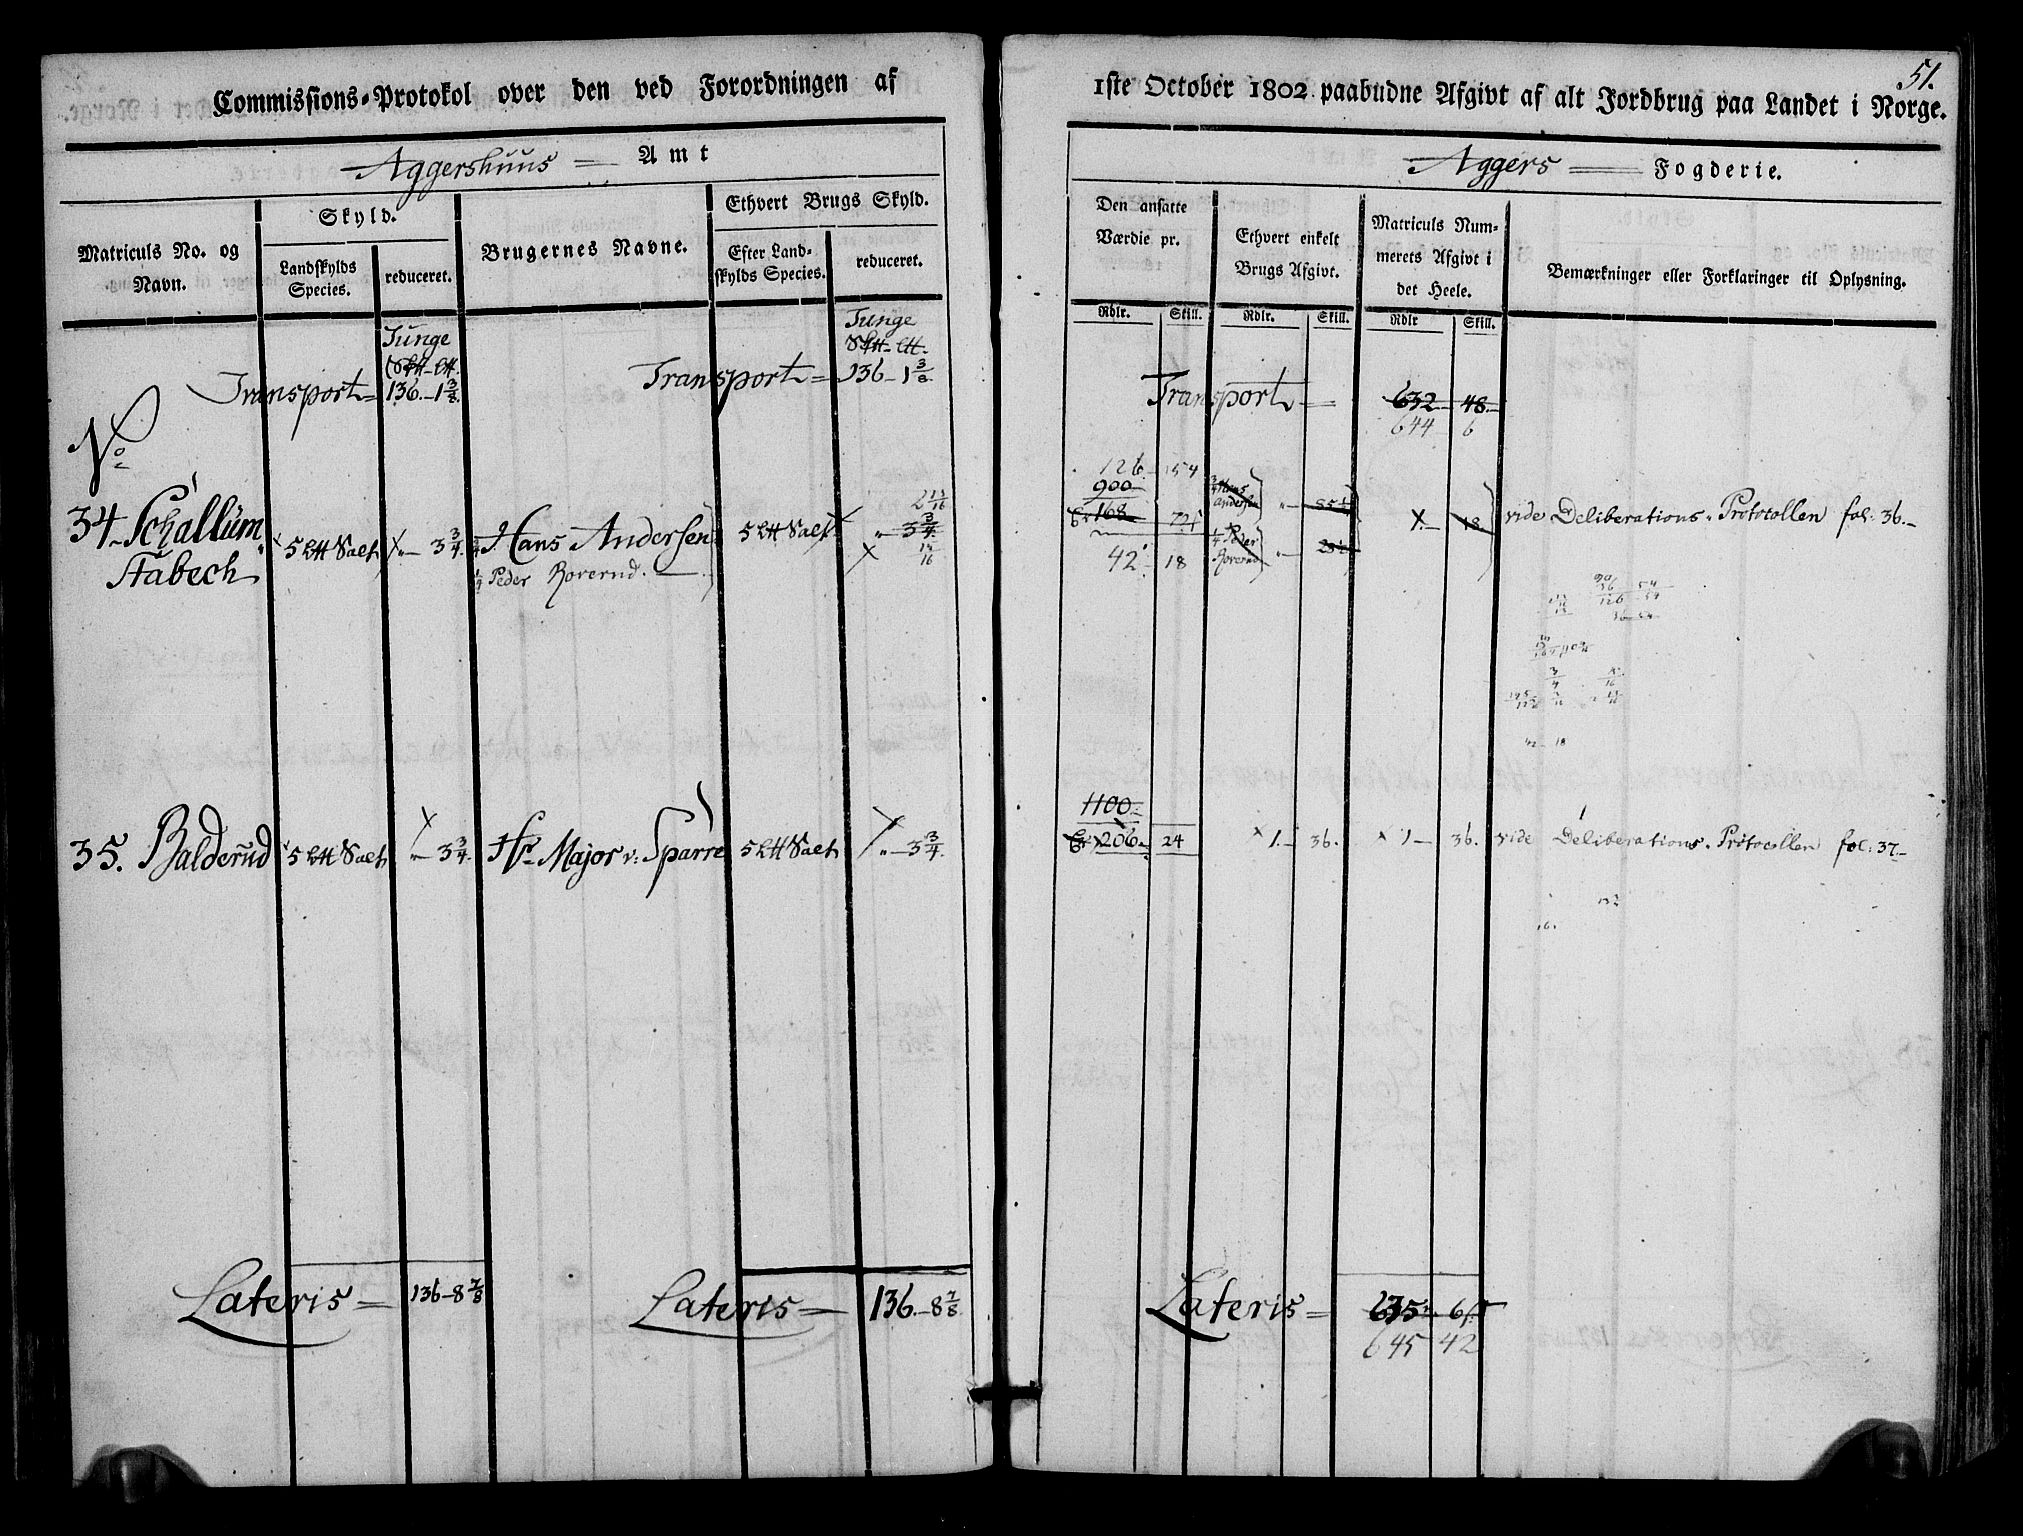 51.
Commissions-Protokol over den ved Forordningen af 1ste October 1802 paabudne Afgivt af alt Jordbrug paa Landet i Norge.
Aggershuus Amt
Aggers Fogderie.
Matriculs No. og Navn.
Skyld.
Landskylds Species.
reduceret.
Brugernes Navne.
Ethvert Brugs Skyld.
Efter Landskylds Species.
reduceret.
Den ansatte Værdie pr.
Ethvert enkelt Brugs Afgivt.
Matriculs Nummerets Afgivt i det Heele.
Bemærkninger eller Forklaringer til Oplysning.
Rdlr. Skill. Rdlr. Skill. Rdlr Skill.
Tunge
Transport = 136.-1 3/8.
Tunge
Transport = 136-1 3/8.
Transport = 632 48.
644 6
No
34. Schallum, Stabech
5 L℔ Salt
" 3 3/4.
3/4 Hans Andersen
1/4 Peder Roverud.
5 L℔ Salt
2 13/16
" 3 3/4.
15/16
126 54
900
168 72
42 18
3/4 Hans Andersen
1/4 Peder Roverud
18.
vide Deliberations-Protocollen fol: 36.
42 - 18
35. Balderud
5 L℔ Salt
" 3 3/4.
Hr. Major v: Sparre
5 L℔ Salt
" 3 3/4.
1100
206 24
1. 36.
1 36.
vide Deliberations-Protocollen fol: 37.
Lateris = 136-8 7/8
Lateris = 136.-8 7/8
Lateris = 635 6
645 42